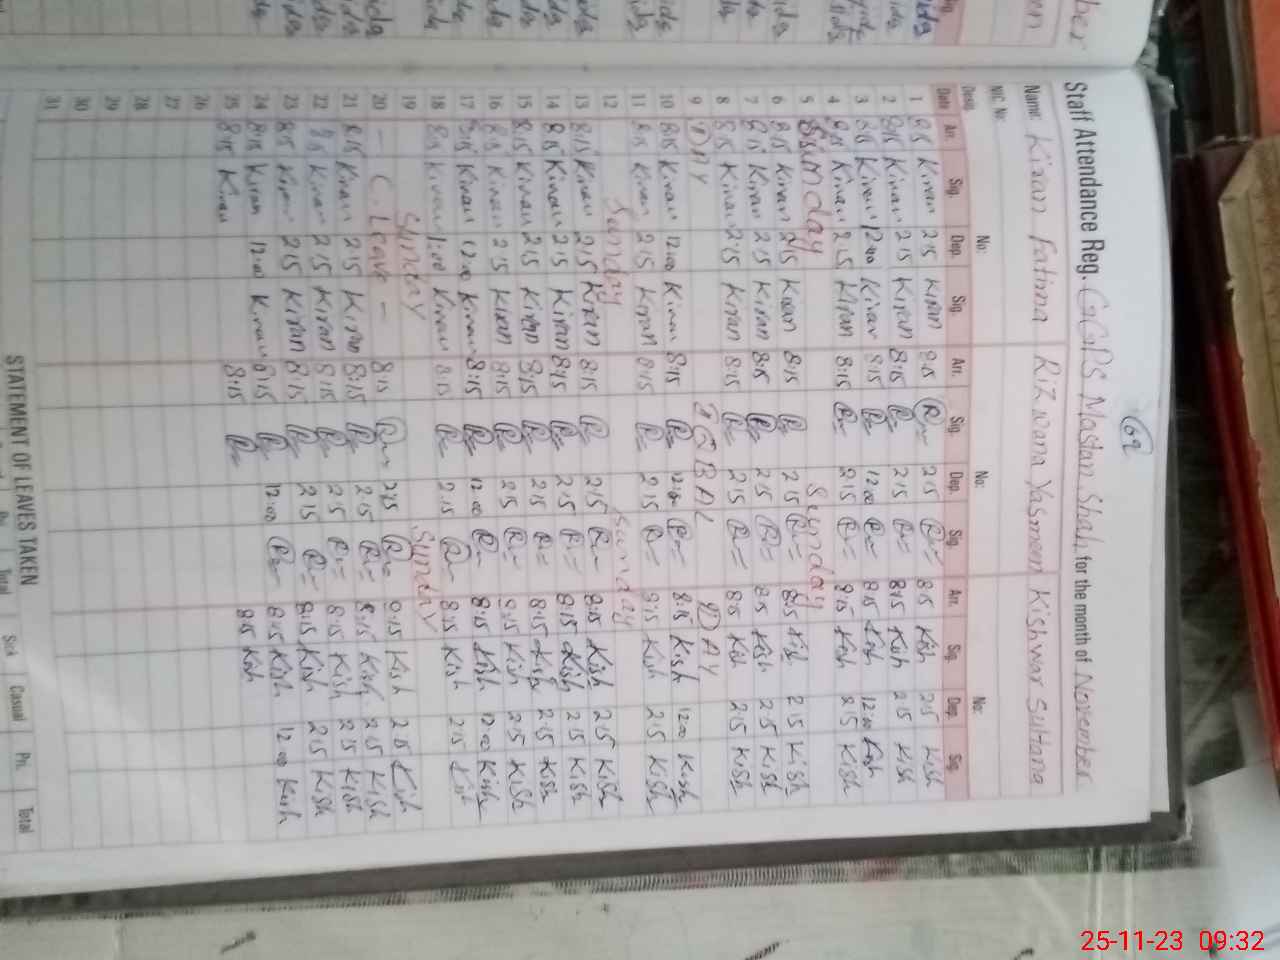 69
Staff Attendance Reg. GGPS Mastan Shah for the month of November
Name: Kiran fatima Rizwana Yasmeen Kishwar Sultana
NIC No: No: No: No:
Desig.
Date Arr. Sig. Dep. Sig. Arr. Sig. Dep. Sig. Arr. Sig. Dep. Sig.
1 8:15 Kiran 2:15 Kiran 8:15 2:15 8:15 Kish 2:15 Kish
2 8:15 Kiran 2:15 Kiran 8:15 2:15 8:15 Kish 2:15 Kish
3 8:15 Kiran 12:00 Kiran 8:15 12:00 8:15 Kish 12:00 Kish
4 8:15 Kiran 2:15 Kiran 8:15 2:15 8:15 Kish 2:15 Kish
5 Sunday Sunday
6 8:15 Kiran 2:15 Kiran 8:15 2:15 8:15 Kish 2:15 Kish
7 8:15 Kiran 2:15 Kiran 8:15 2:15 8:15 Kish 2:15 Kish
8 8:15 Kiran 2:15 Kiran 8:15 2:15 8:15 Kish 2:15 Kish
9 DAY IQBAL DAY
10 8:15 Kiran 12:00 Kiran 8:15 12:00 8:15 Kish 12:00 Kish
11 8:15 Kiran 2:15 Kiran 8:15 2:15 8:15 Kish 2:15 Kish
12 Sunday Sunday
13 8:15 Kiran 2:15 Kiran 8:15 2:15 8:15 Kish 2:15 Kish
14 8:15 Kiran 2:15 Kiran 8:15 2:15 8:15 Kish 2:15 Kish
15 8:15 Kiran 2:15 Kiran 8:15 2:15 8:15 Kish 2:15 Kish
16 8:15 Kiran 2:15 Kiran 8:15 2:15 8:15 Kish 2:15 Kish
17 8:15 Kiran 12:00 Kiran 8:15 12:00 8:15 Kish 12:00 Kish
18 8:15 Kiran 1:00 Kiran 8:15 2:15 8:15 Kish 2:15 Kish
19 Sunday Sunday
20 - C. Leave - 8:15 2:15 8:15 Kish 2:15 Kish
21 8:15 Kiran 2:15 Kiran 8:15 2:15 8:15 Kish 2:15 Kish
22 8:15 Kiran 2:15 Kiran 8:15 2:15 8:15 Kish 2:15 Kish
23 8:15 Kiran 2:15 Kiran 8:15 2:15 8:15 Kish 2:15 Kish
24 8:15 Kiran 12:00 Kiran 8:15 12:00 8:15 Kish 12:00 Kish
25 8:15 Kiran 8:15 8:15 Kish
26
27
28
29
30
31
STATEMENT OF LEAVES TAKEN
Total Sick Casual Ph. Total
25-11-23 09:32